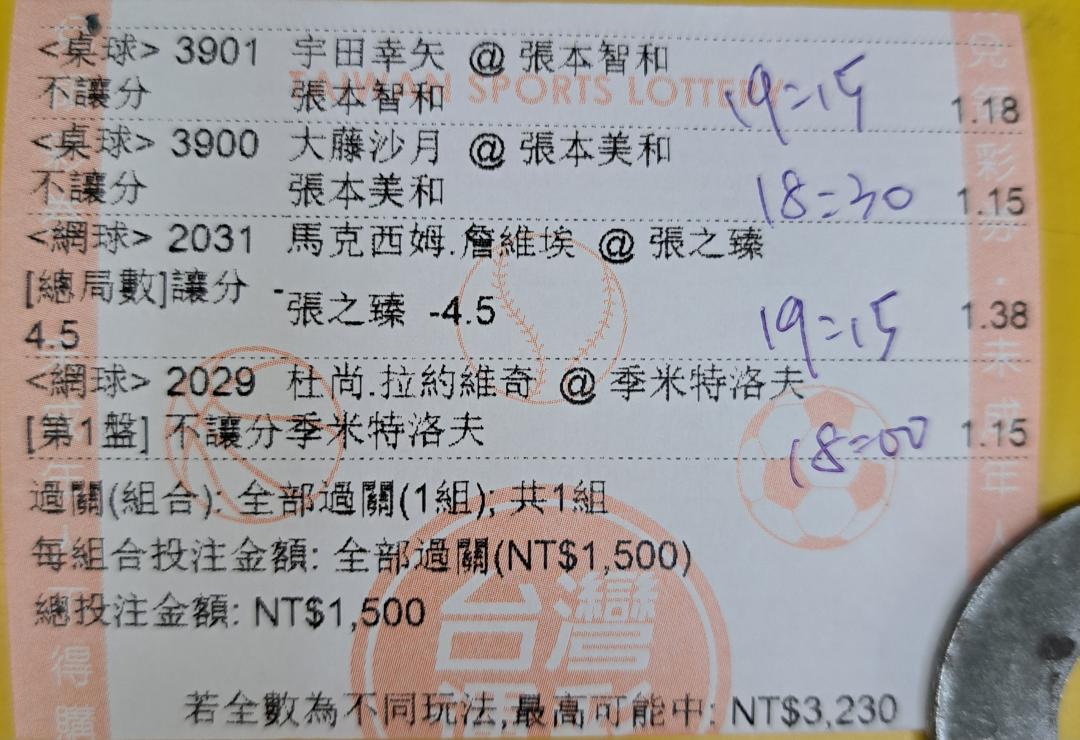 <桌球> 3901 宇田幸矢 @ 張本智和
不讓分 張本智和 19=15 1.18
TAIWAN SPORTS LOTTERY
<桌球> 3900 大藤沙月 @ 張本美和
不讓分 張本美和 18=30 1.15
<網球> 2031 馬克西姆.詹維埃 @ 張之臻
[總局數]讓分 -
4.5 張之臻 -4.5 19=15 1.38
<網球> 2029 杜尚.拉約維奇 @ 季米特洛夫
[第1盤] 不讓分季米特洛夫 18=00 1.15
過關(組合): 全部過關(1組); 共1組
每組合投注金額: 全部過關(NT$1,500)
總投注金額: NT$1,500
台灣
若全數為不同玩法,最高可能中: NT$3,230